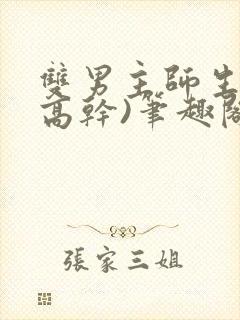 雙男主師生
高幹)筆趣閣
張家三姐